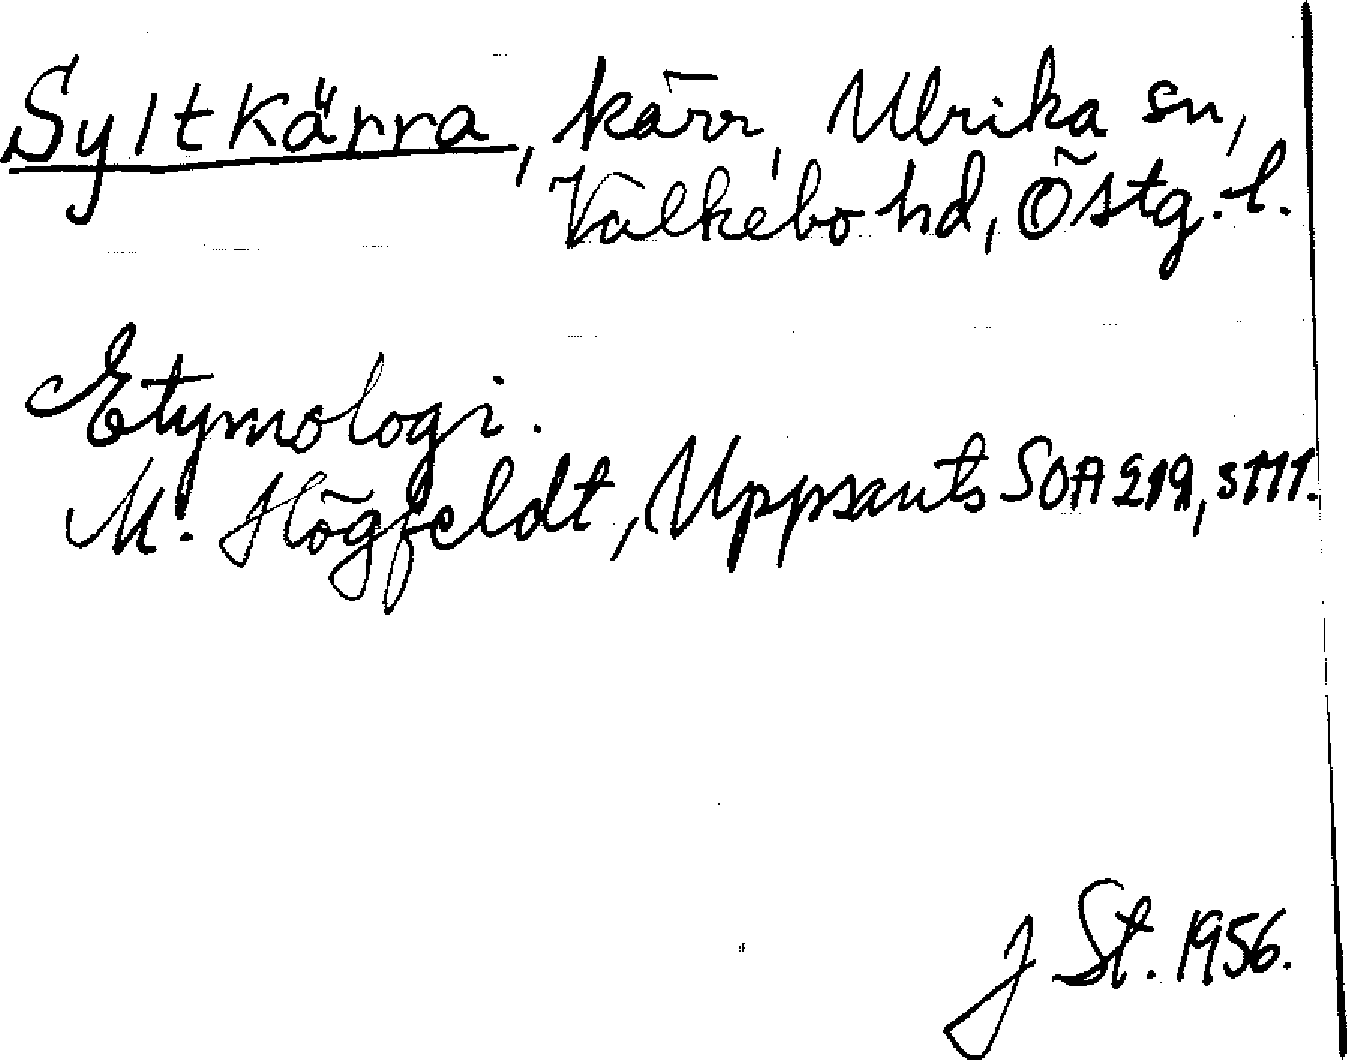 Syltkärra, kärr, Ulrika sn,
Valkebo hd, Östg. l.
Etymologi.
M. Högfeldt, Uppsauts SOA 219, s 111.
J St. 1956.